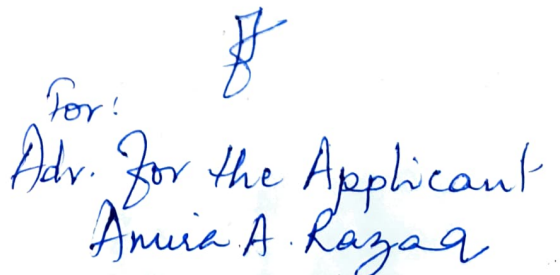 For:
Adv. For the Applicant
Amira A. Razaq